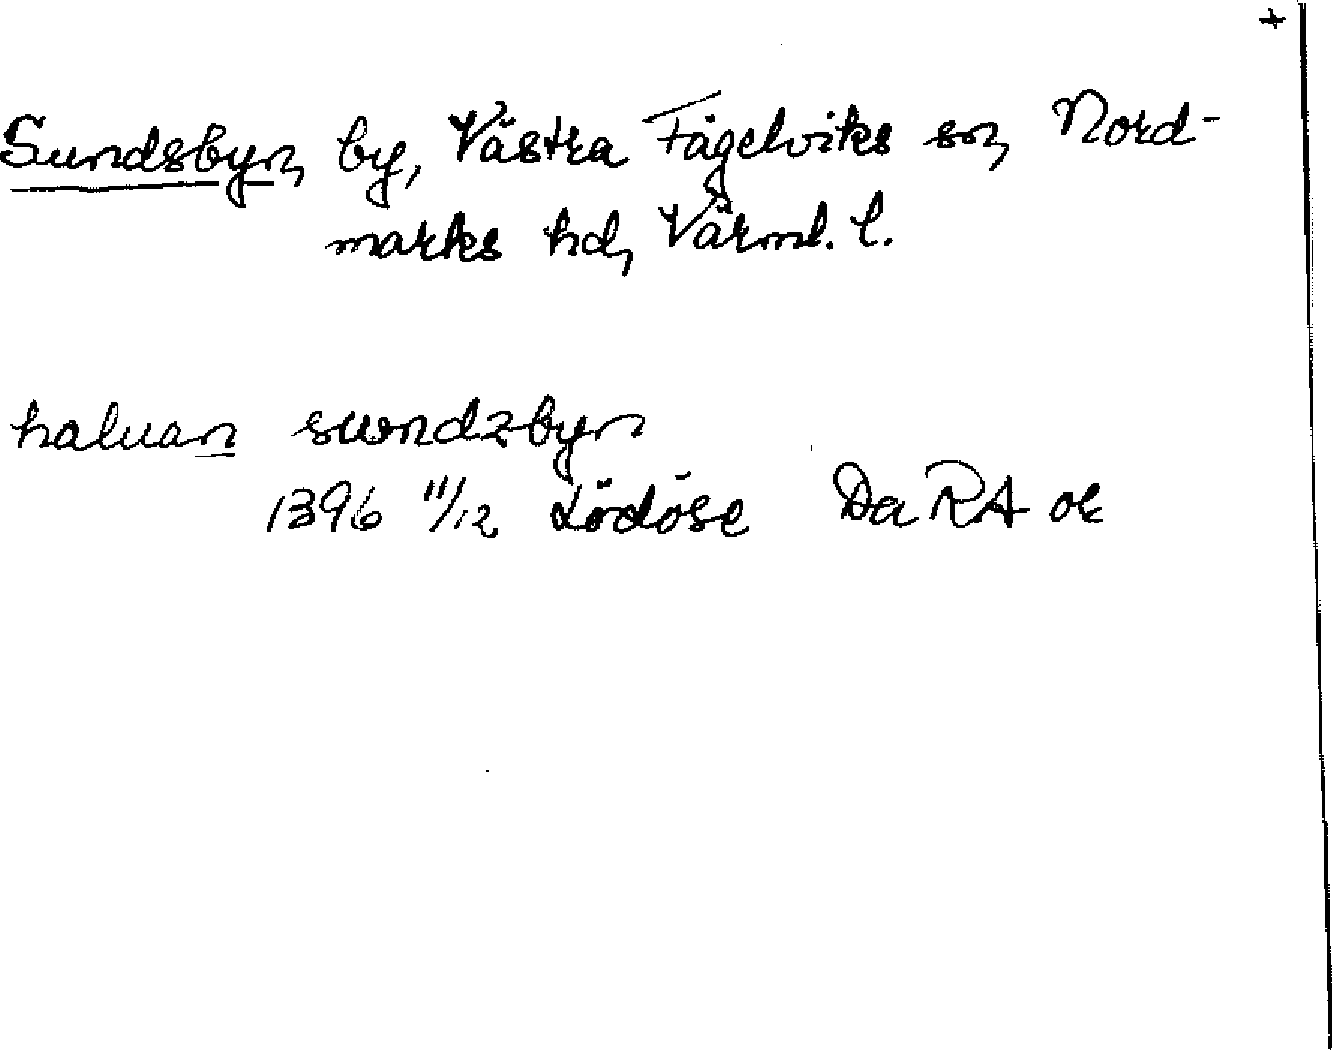 +
Sundsbyn, by, Västra Fågelviks sn, Nord-
marks hd, Värml. l.
haluan sundzbyn
1396 11/12 Lödöse DaRA or